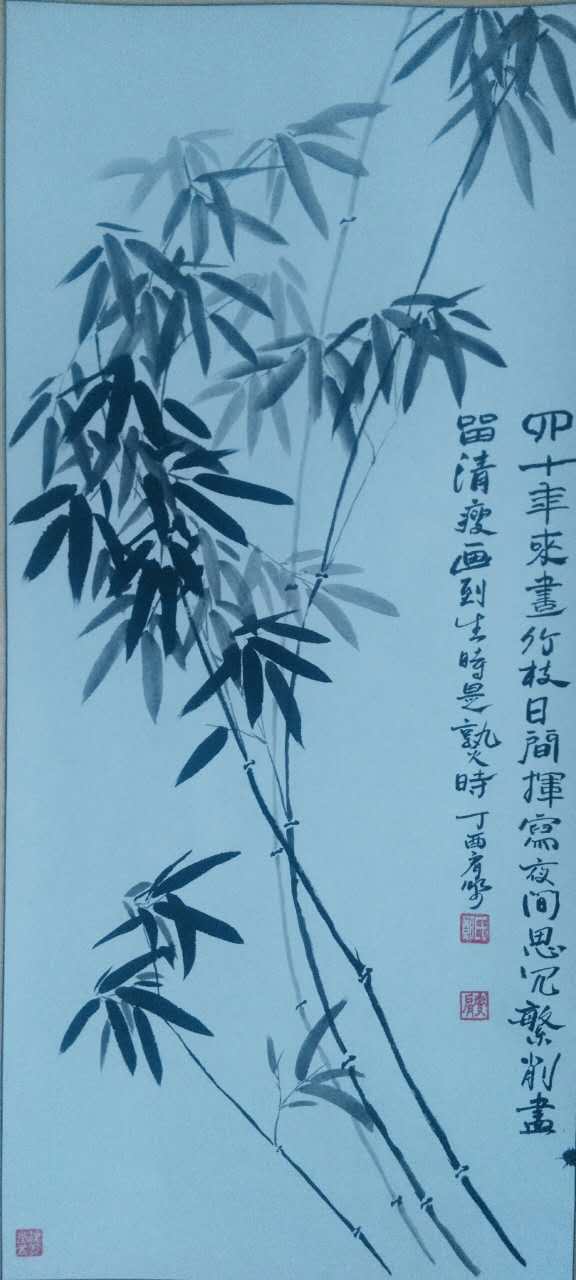 四十年来畫竹枝日間揮寫夜間思冗繁削盡
留清瘦画到生時是熟時 丁酉